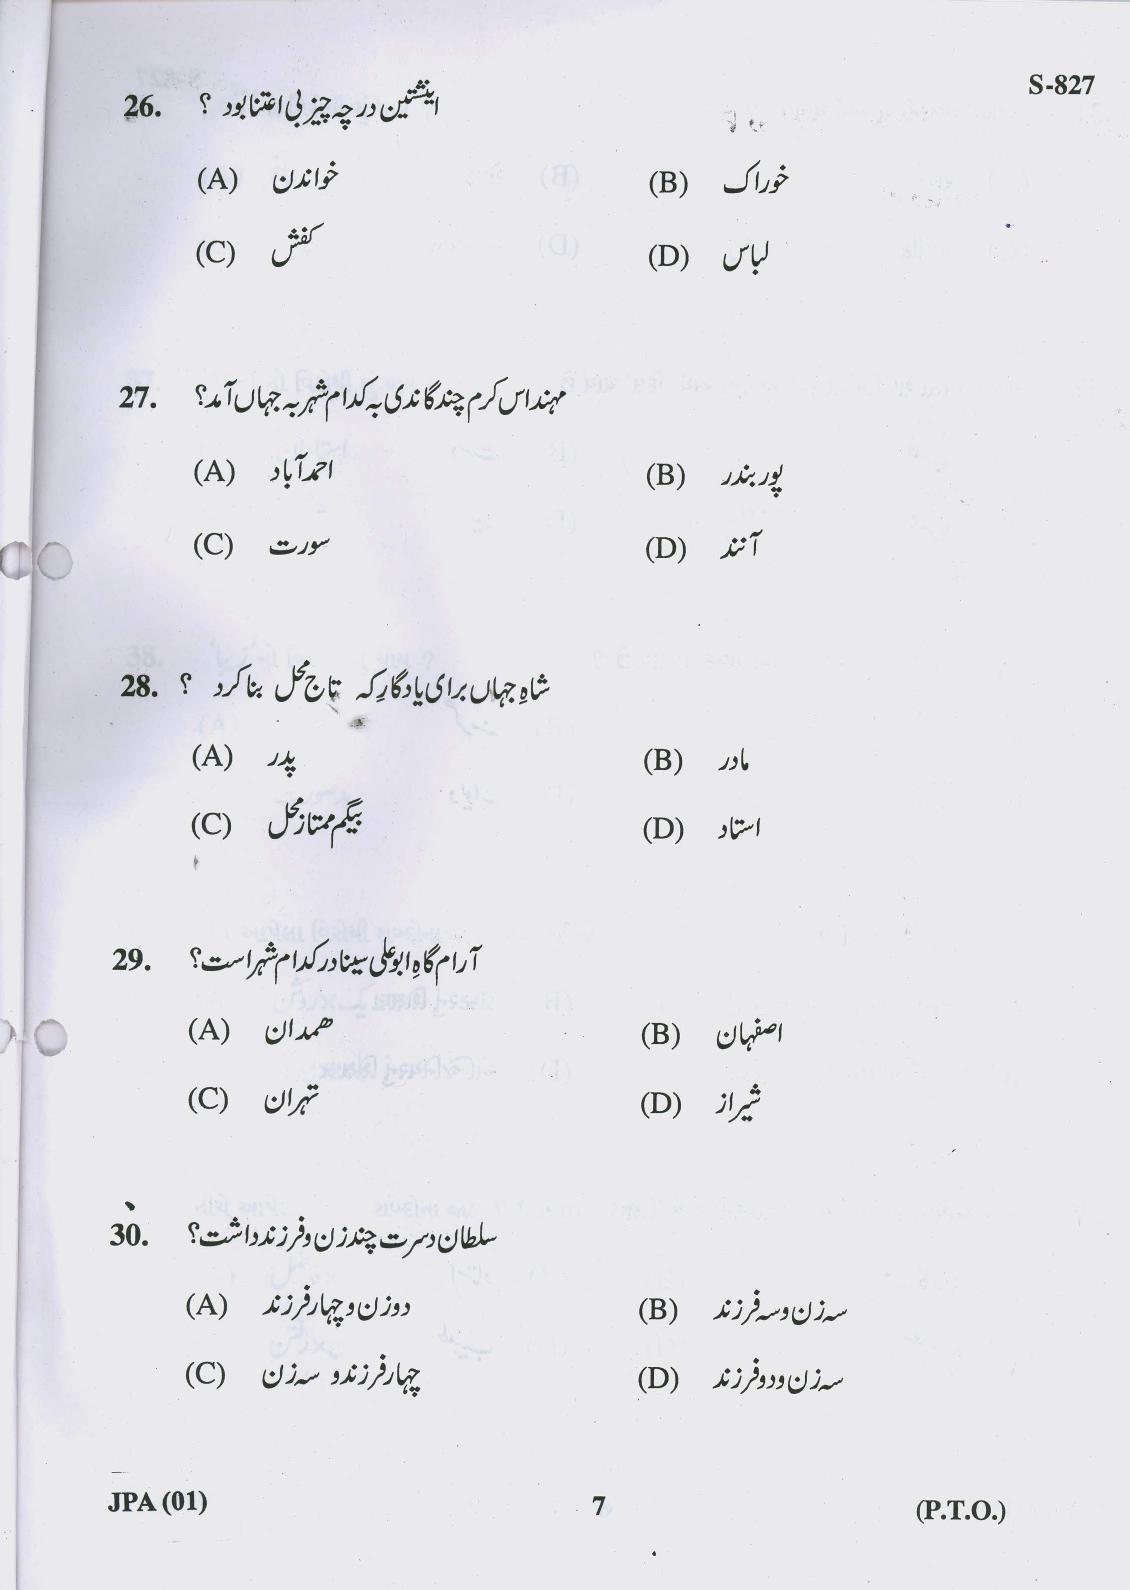 S-827
26. اینشتین در چہ چیز بی اعتنا بود ؟
(A) خواندن (B) خوراک
(C) کفش (D) لباس
27. مہنداس کرم چند گاندی بہ کدام شہر بہ جہاں آمد؟
(A) احمد آباد (B) پور بندر
(C) سورت (D) آنند
28. شاہِ جہاں برای یادگارِ کہ تاج محل بنا کرد ؟
(A) پدر (B) مادر
(C) بیگم ممتاز محل (D) استاد
29. آرام گاہِ ابو علی سینا در کدام شہر است؟
(A) ھمدان (B) اصفہان
(C) تہران (D) شیراز
30. سلطان دسرت چند زن و فرزند داشت؟
(A) دو زن و چہار فرزند (B) سہ زن و سہ فرزند
(C) چہار فرزند و سہ زن (D) سہ زن و دو فرزند
JPA (01) 7 (P.T.O.)